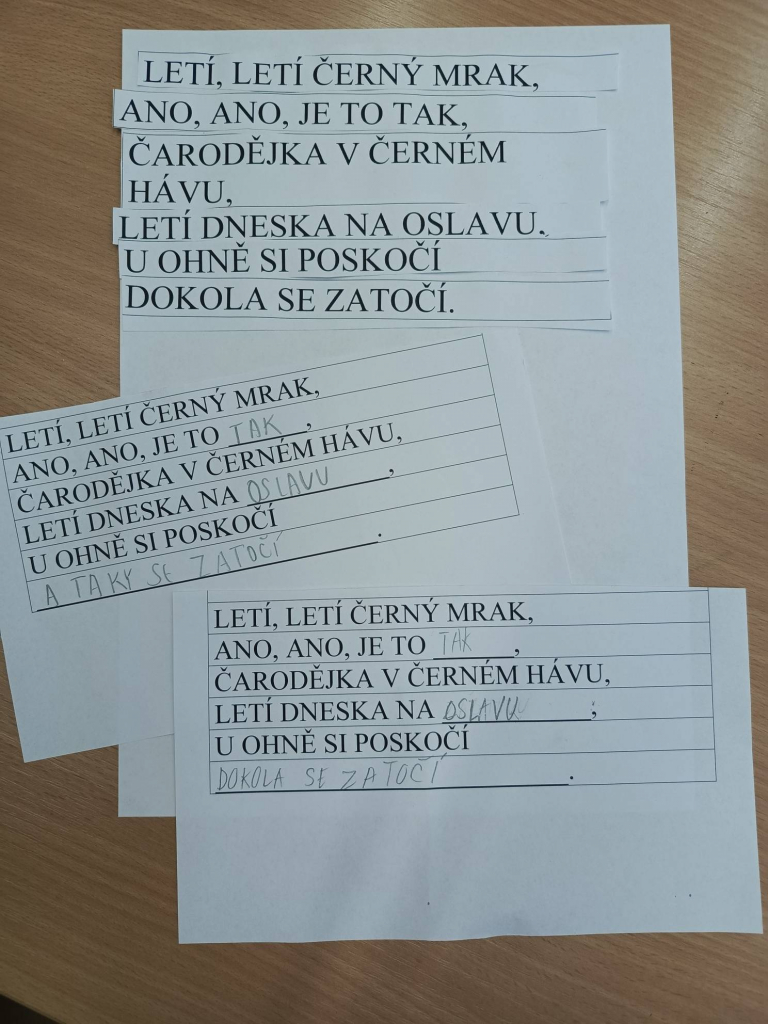 LETÍ, LETÍ ČERNÝ MRAK,
ANO, ANO, JE TO TAK,
ČARODĚJKA V ČERNÉM
HÁVU,
LETÍ DNESKA NA OSLAVU.
U OHNĚ SI POSKOČÍ
DOKOLA SE ZATOČÍ.
LETÍ, LETÍ ČERNÝ MRAK,
ANO, ANO, JE TO TAK,
ČARODĚJKA V ČERNÉM HÁVU,
LETÍ DNESKA NA OSLAVU,
U OHNĚ SI POSKOČÍ
A TAKY SE ZATOČÍ.
LETÍ, LETÍ ČERNÝ MRAK,
ANO, ANO, JE TO TAK,
ČARODĚJKA V ČERNÉM HÁVU,
LETÍ DNESKA NA OSLAVU,
U OHNĚ SI POSKOČÍ
DOKOLA SE ZATOČÍ.